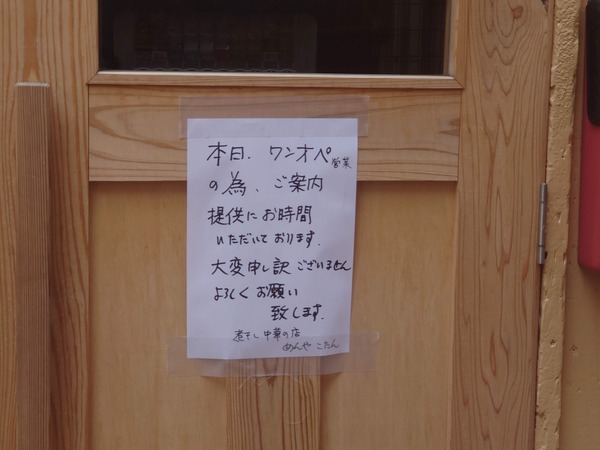 本日、ワンオペ営業
の為、ご案内
提供にお時間
いただいております。
大変申し訳ございません
よろしくお願い
致します。
煮干し中華の店
めんや こたん